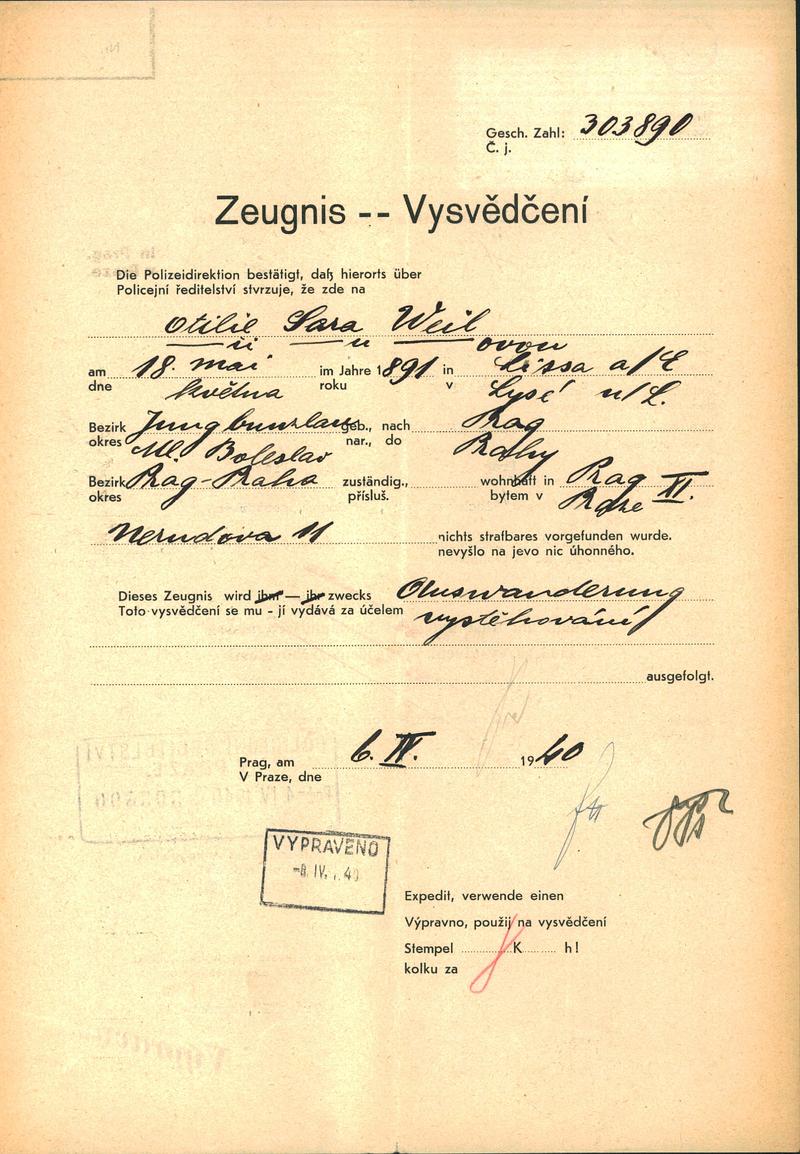 Gesch. Zahl: 303890
Č. j.
Zeugnis -- Vysvědčení
Die Polizeidirektion bestätigt, daß hierorts über
Policejní ředitelství stvrzuje, že zde na
Otilie Sara Weil
ii u ovou
am 18. mai im Jahre 1891 in Lissa a/E
dne května roku v Lysé n/L.
Bezirk Jungbunzlau geb., nach Prag
okres Ml. Boleslav nar., do Prahy
Bezirk Prag-Praha zuständig., wohnhaft in Prag XI.
okres přísluš. bytem v Praze
Nerudova 11 nichts strafbares vorgefunden wurde.
nevyšlo na jevo nic úhonného.
Dieses Zeugnis wird ihm — ihr zwecks Auswanderung
Toto vysvědčení se mu - jí vydává za účelem vystěhování
ausgefolgt.
Prag, am 6. IV. 1940
V Praze, dne
VYPRAVENO
-8. IV. 40
Expedit, verwende einen
Výpravno, použij na vysvědčení
Stempel K h!
kolku za